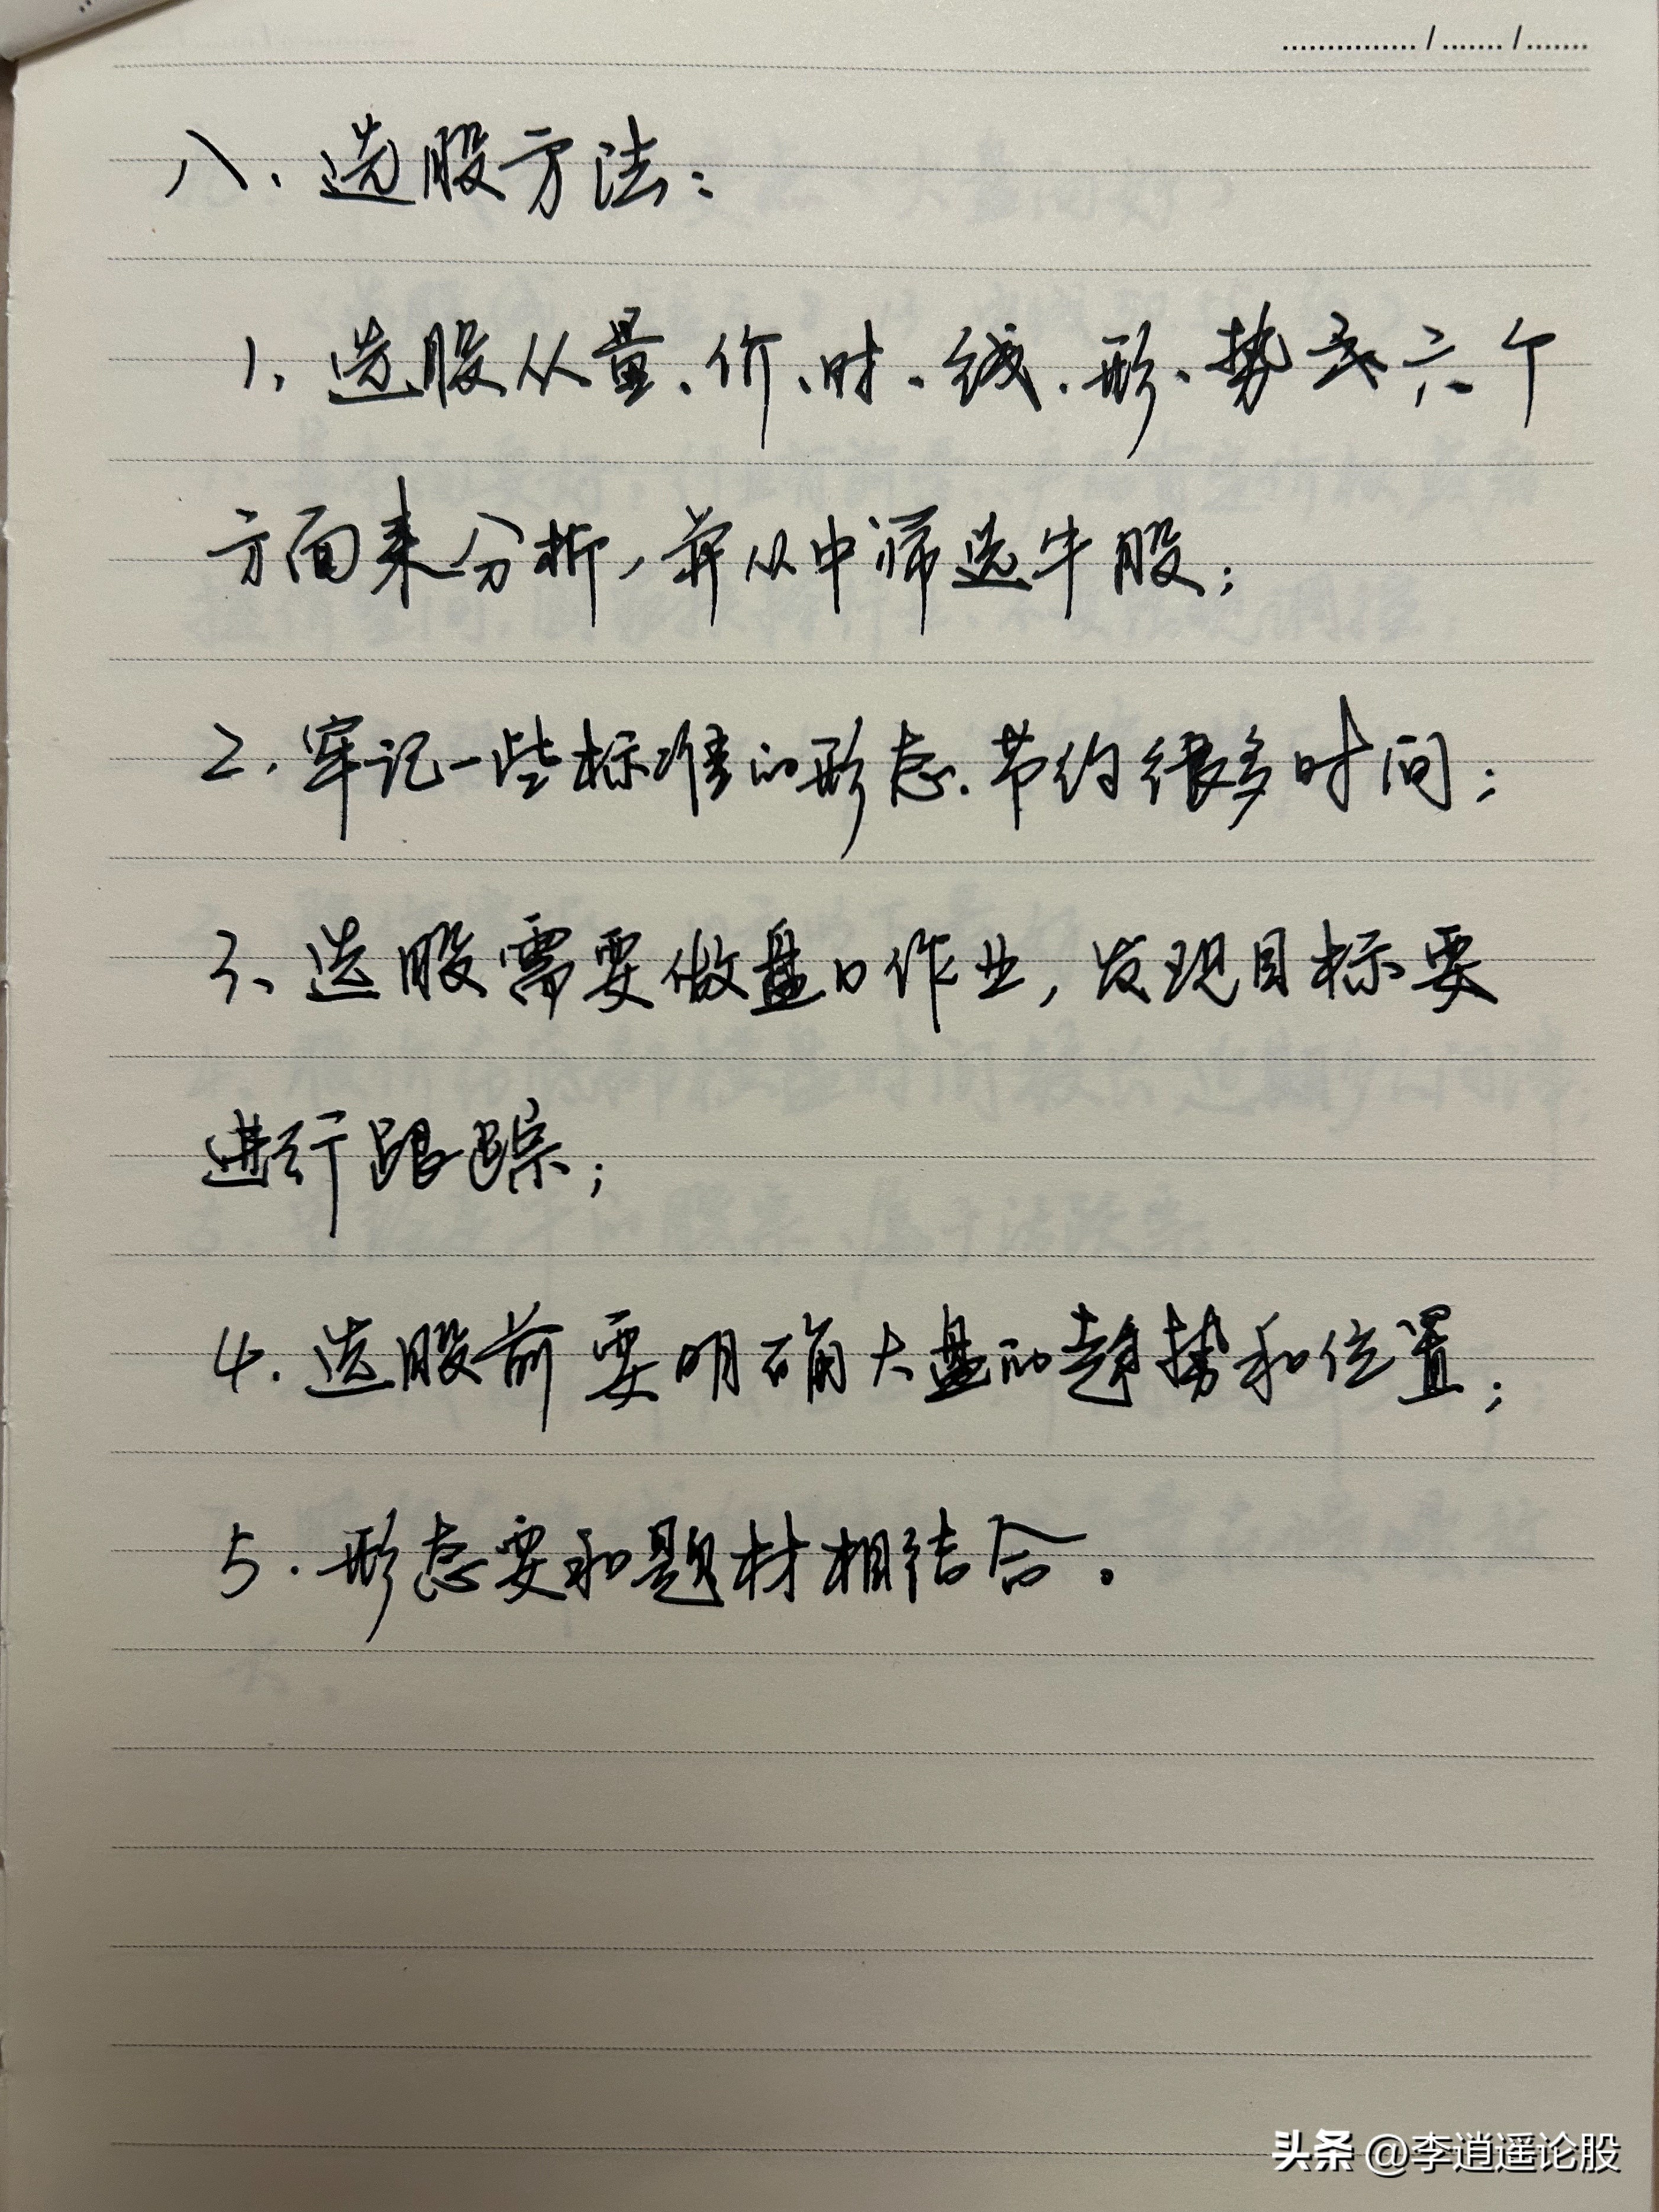 八、选股方法：
1、选股从量、价、时、线、形、势这六个
方面来分析，并从中筛选牛股；
2、牢记一些标准的形态、节约很多时间；
3、选股需要做盘口作业，发现目标要
进行跟踪；
4、选股前要明确大盘的趋势和位置；
5、形态要和题材相结合。
头条 @李逍遥论股